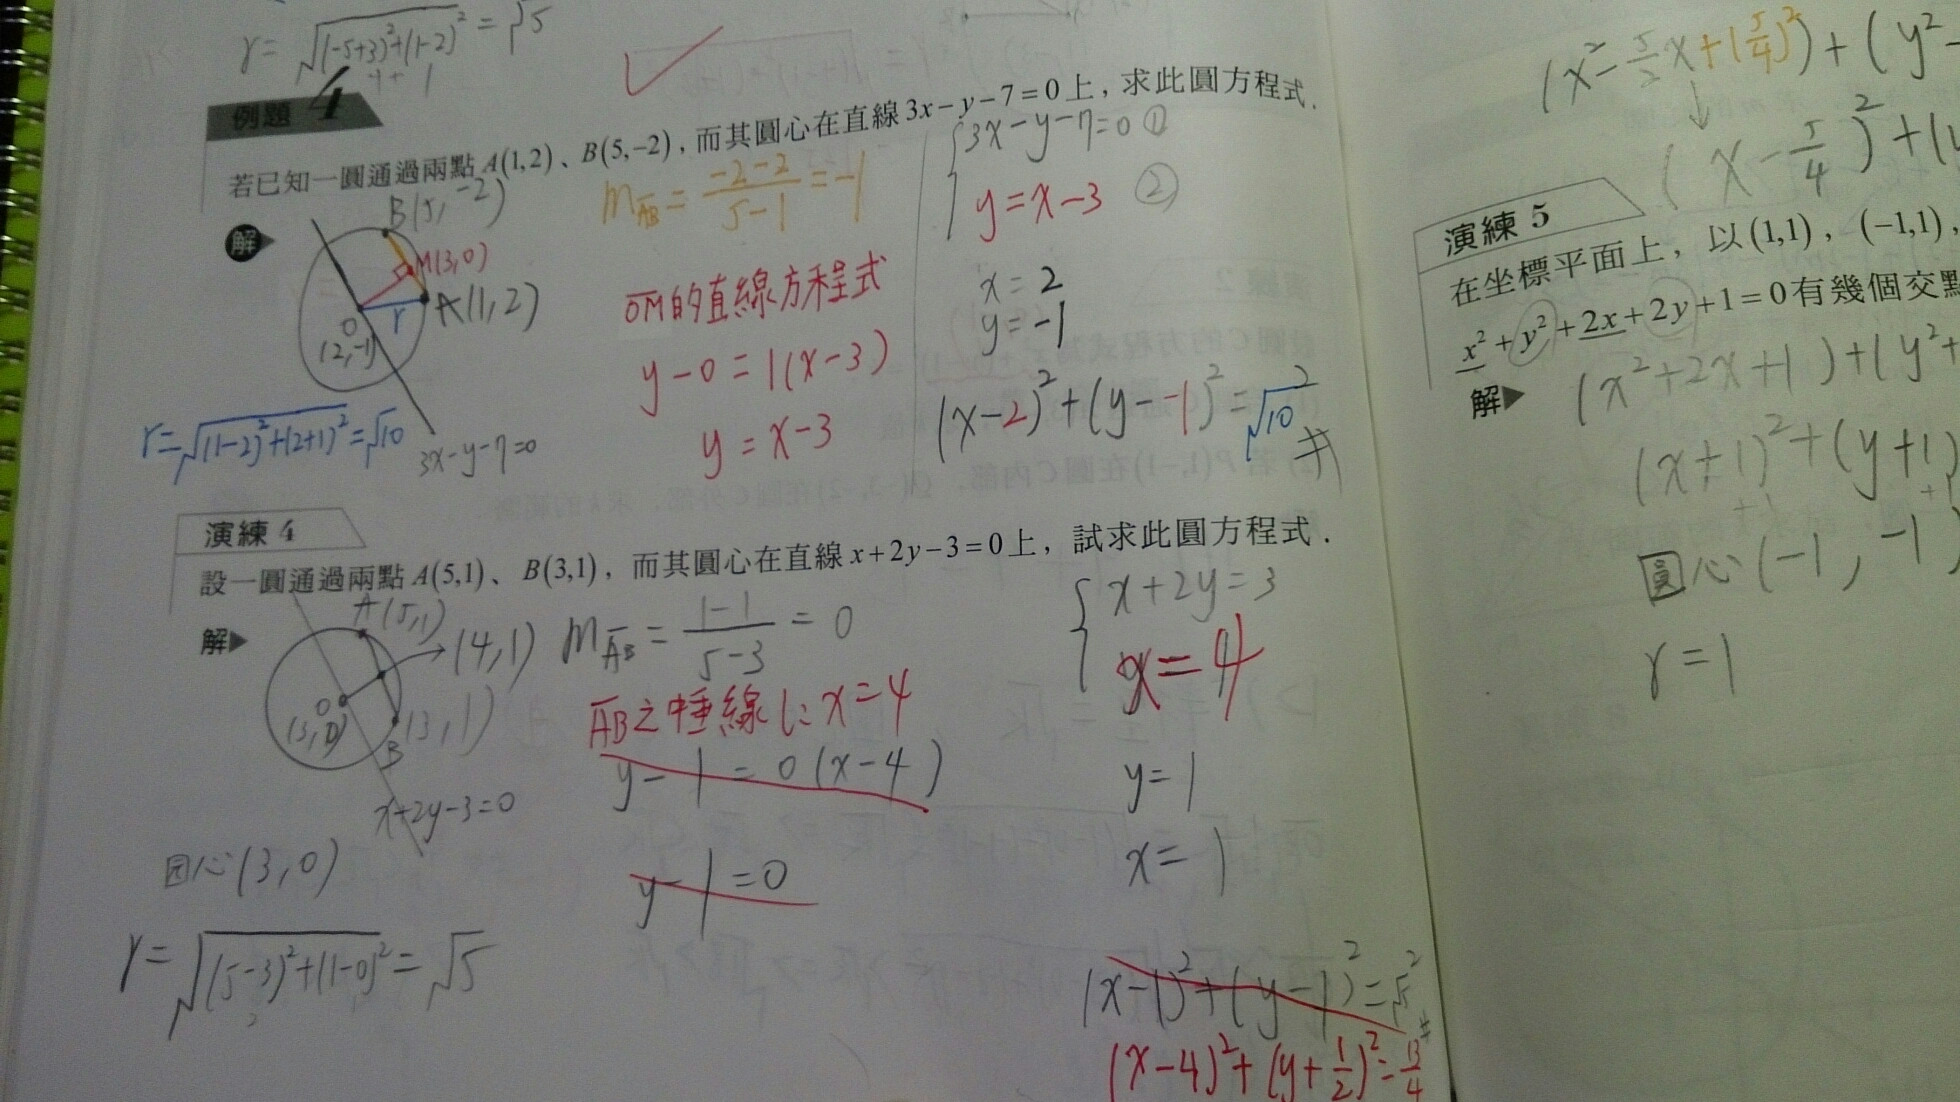 r = √((-5+3)²+(1-2)²) = √5
4+1
例題 4
若已知一圓通過兩點 A(1,2)、B(5,-2)，而其圓心在直線 3x-y-7=0 上，求此圓方程式.
解
B(5,-2)
M(3,0)
A(1,2)
O
(2,-1)
r
r=√((1-2)²+(2+1)²)=√10
3x-y-7=0
m_AB = (-2-2)/(5-1) = -1
OM的直線方程式
y-0=1(x-3)
y=x-3
{3x-y-7=0 ①
y=x-3 ②
x=2
y=-1
(x-2)²+(y--1)²=√10²
演練 4
設一圓通過兩點 A(5,1)、B(3,1)，而其圓心在直線 x+2y-3=0 上，試求此圓方程式.
解
A(5,1)
(4,1)
O
B(3,1)
x+2y-3=0
圓心(3,0)
r=√((5-3)²+(1-0)²)=√5
m_AB = (1-1)/(5-3) = 0
AB之中垂線 L: x=4
y-1=0(x-4)
y-1=0
{x+2y=3
x=4
y=1
x=1
(x-1)²+(y-1)²=√5²
(x-4)²+(y+1/2)²=13/4
(x²-5/2x+(5/4)²)+(y²-
(x-5/4)²+(y
演練 5
在坐標平面上，以(1,1)，(-1,1)，
x²+y²+2x+2y+1=0有幾個交點
解
(x²+2x+1)+(y²+
(x+1)²+(y+1)
+1 +1
圓心(-1,-1)
r=1